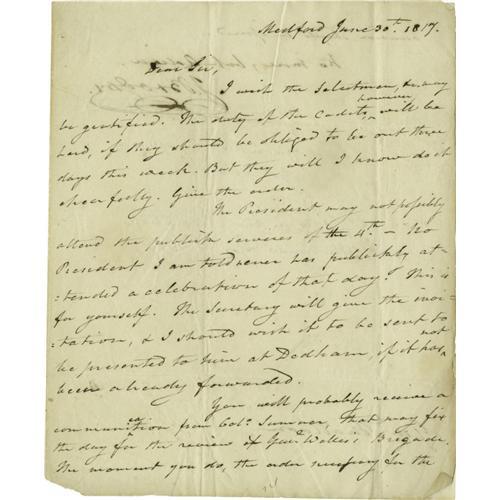 Medford June 30th. 1817.
Dear Sir,
I wish the Selectmen, &c. may
be gratified. The duty of the Cadets, however, will be
hard, if they should be obliged to be out three
days this week. But they will I know do it
chearfully. Give the order.
The President may not possibly
attend the publick services of the 4th. – No
President I am told never has publickly at-
-tended a celebration of that day. This is
for yourself. The Secretary will give the invi-
-tation, & I should wish it to be sent to
be presented to him at Dedham, if it has not
been already forwarded.
You will probably receive a
communication from Colo. Sumner, that may fix
the day for the review of Genl. Welles's Brigade.
The moment you do, the order necessary for the